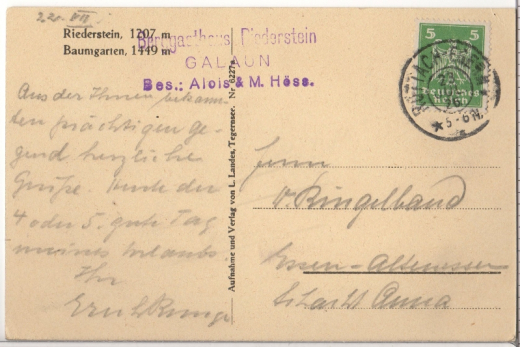 Riederstein, 1207 m
Baumgarten, 1449 m
Berggasthaus Riederstein
GALAUN
Bes.: Alois & M. Höss.
5 5
Deutsches
Reich
5-6 N.
Aus der Ihnen bekann-
ten prächtigen Ge-
gend herzliche
Grüße. Heute der
4 oder 5. gute Tag
meines Urlaubs.
Ihr
Aufnahme und Verlag von L. Landes, Tegernsee. Nr 6227a
Herrn
v. Ringelband
Essen-Altenessen
Schacht Anna